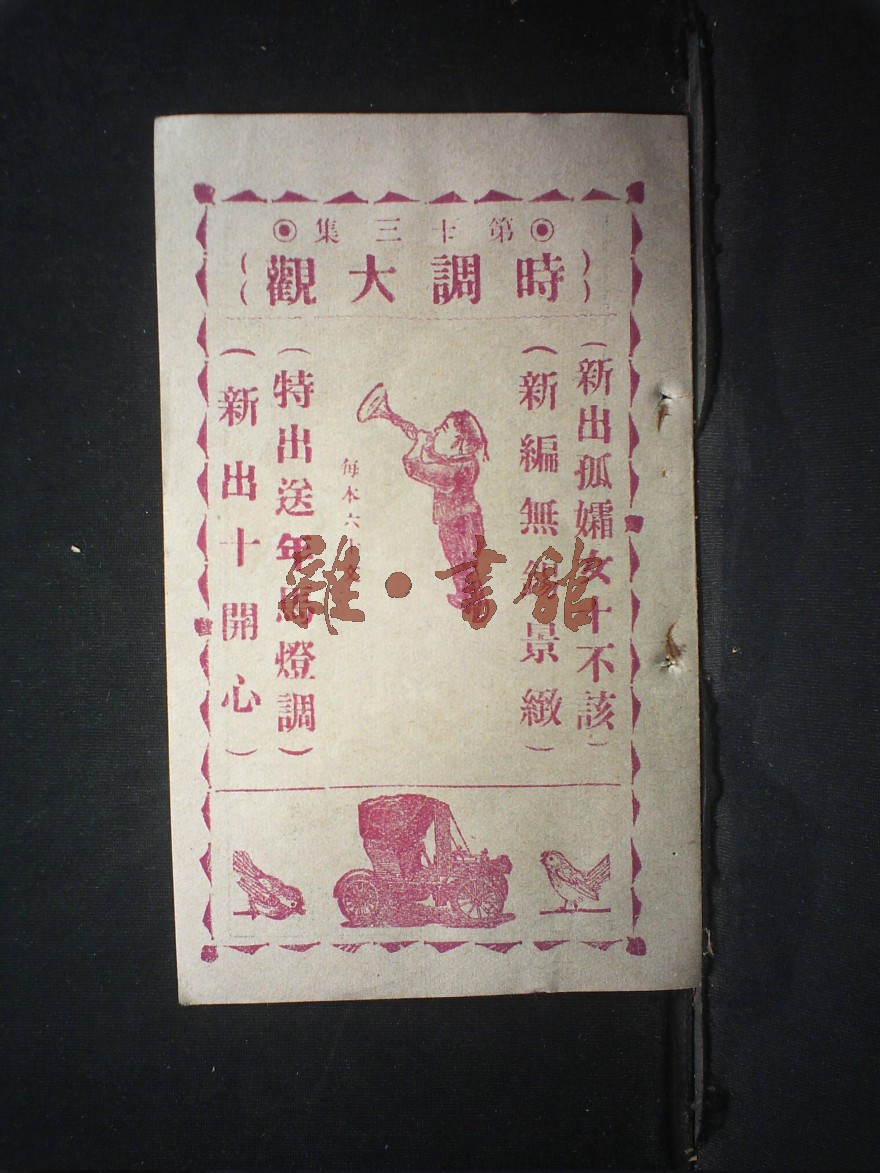 第十三集
時調大觀
（新出孤孀女十不該）
（新編無錫景緻）
每本六十文
（特出送年馬燈調）
（新出十開心）
雜·書館